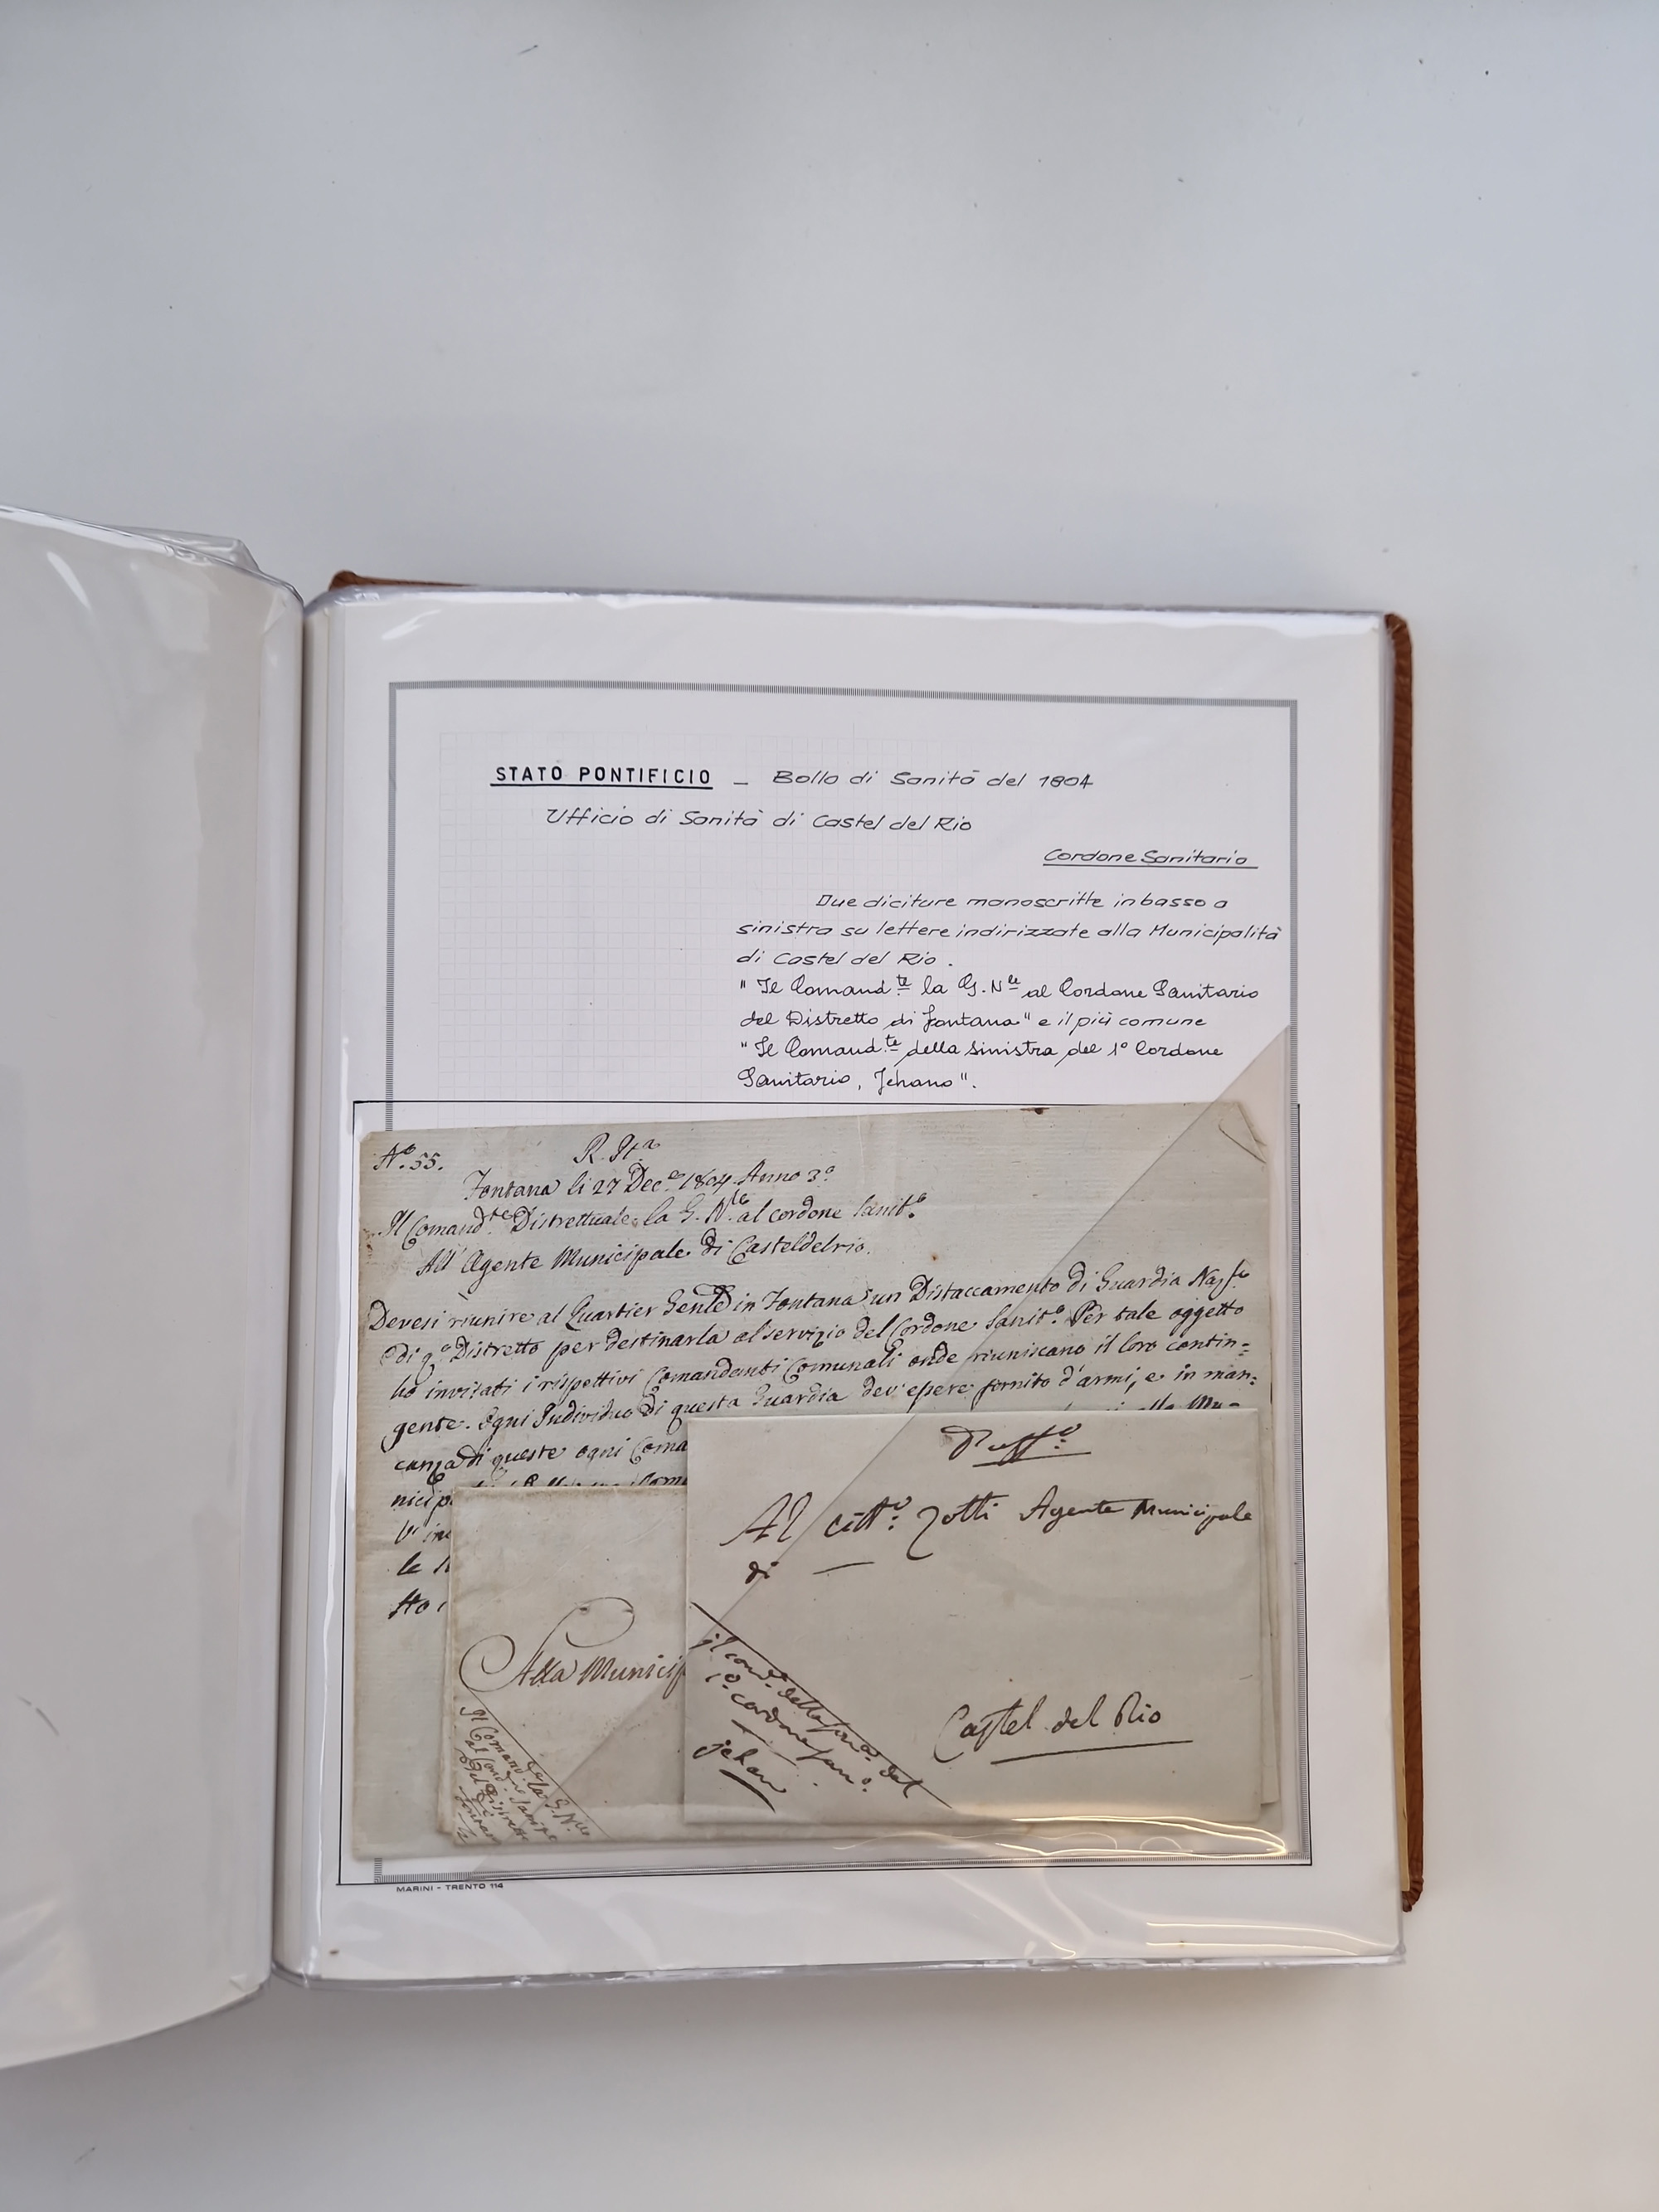 STATO PONTIFICIO – Bollo di Sanità del 1804
Ufficio di Sanità di Castel del Rio
Cordone Sanitario
Due diciture manoscritte in basso a
sinistra su lettere indirizzate alla Municipalità
di Castel del Rio.
" Il Comand.te la G. Nle al Cordone Sanitario
del Distretto di Fontana" e il più comune
" Il Comand.te della sinistra del 1° Cordone
Sanitario, Jehano".
N° 55. R. Ita
Fontana li 27 Dec.e 1804. Anno 3°
Il Comand.te Distrettuale la G. Nle al cordone Sanit.o
All' Agente Municipale di Casteldelrio.
Devesi riunire al Quartier Genle in Fontana un Distaccamento di Guardia
di q.o Distretto per destinarla al servizio del Cordone Sanit.o Per tale oggetto
ho invitati i rispettivi Comandanti Comunali onde riuniscano il loro contin=
gente. Ogni Individuo di questa Guardia dev'essere fornito d'armi, e in man=
canza di queste ogni Coma
nicip
le
tto
Al citt.o Zotti Agente Municipale
di
Castel del Rio
il com.te della sin.a del
1.o cordone san.o
jehan
Alla Municip
Il Comand.te la G. Nle